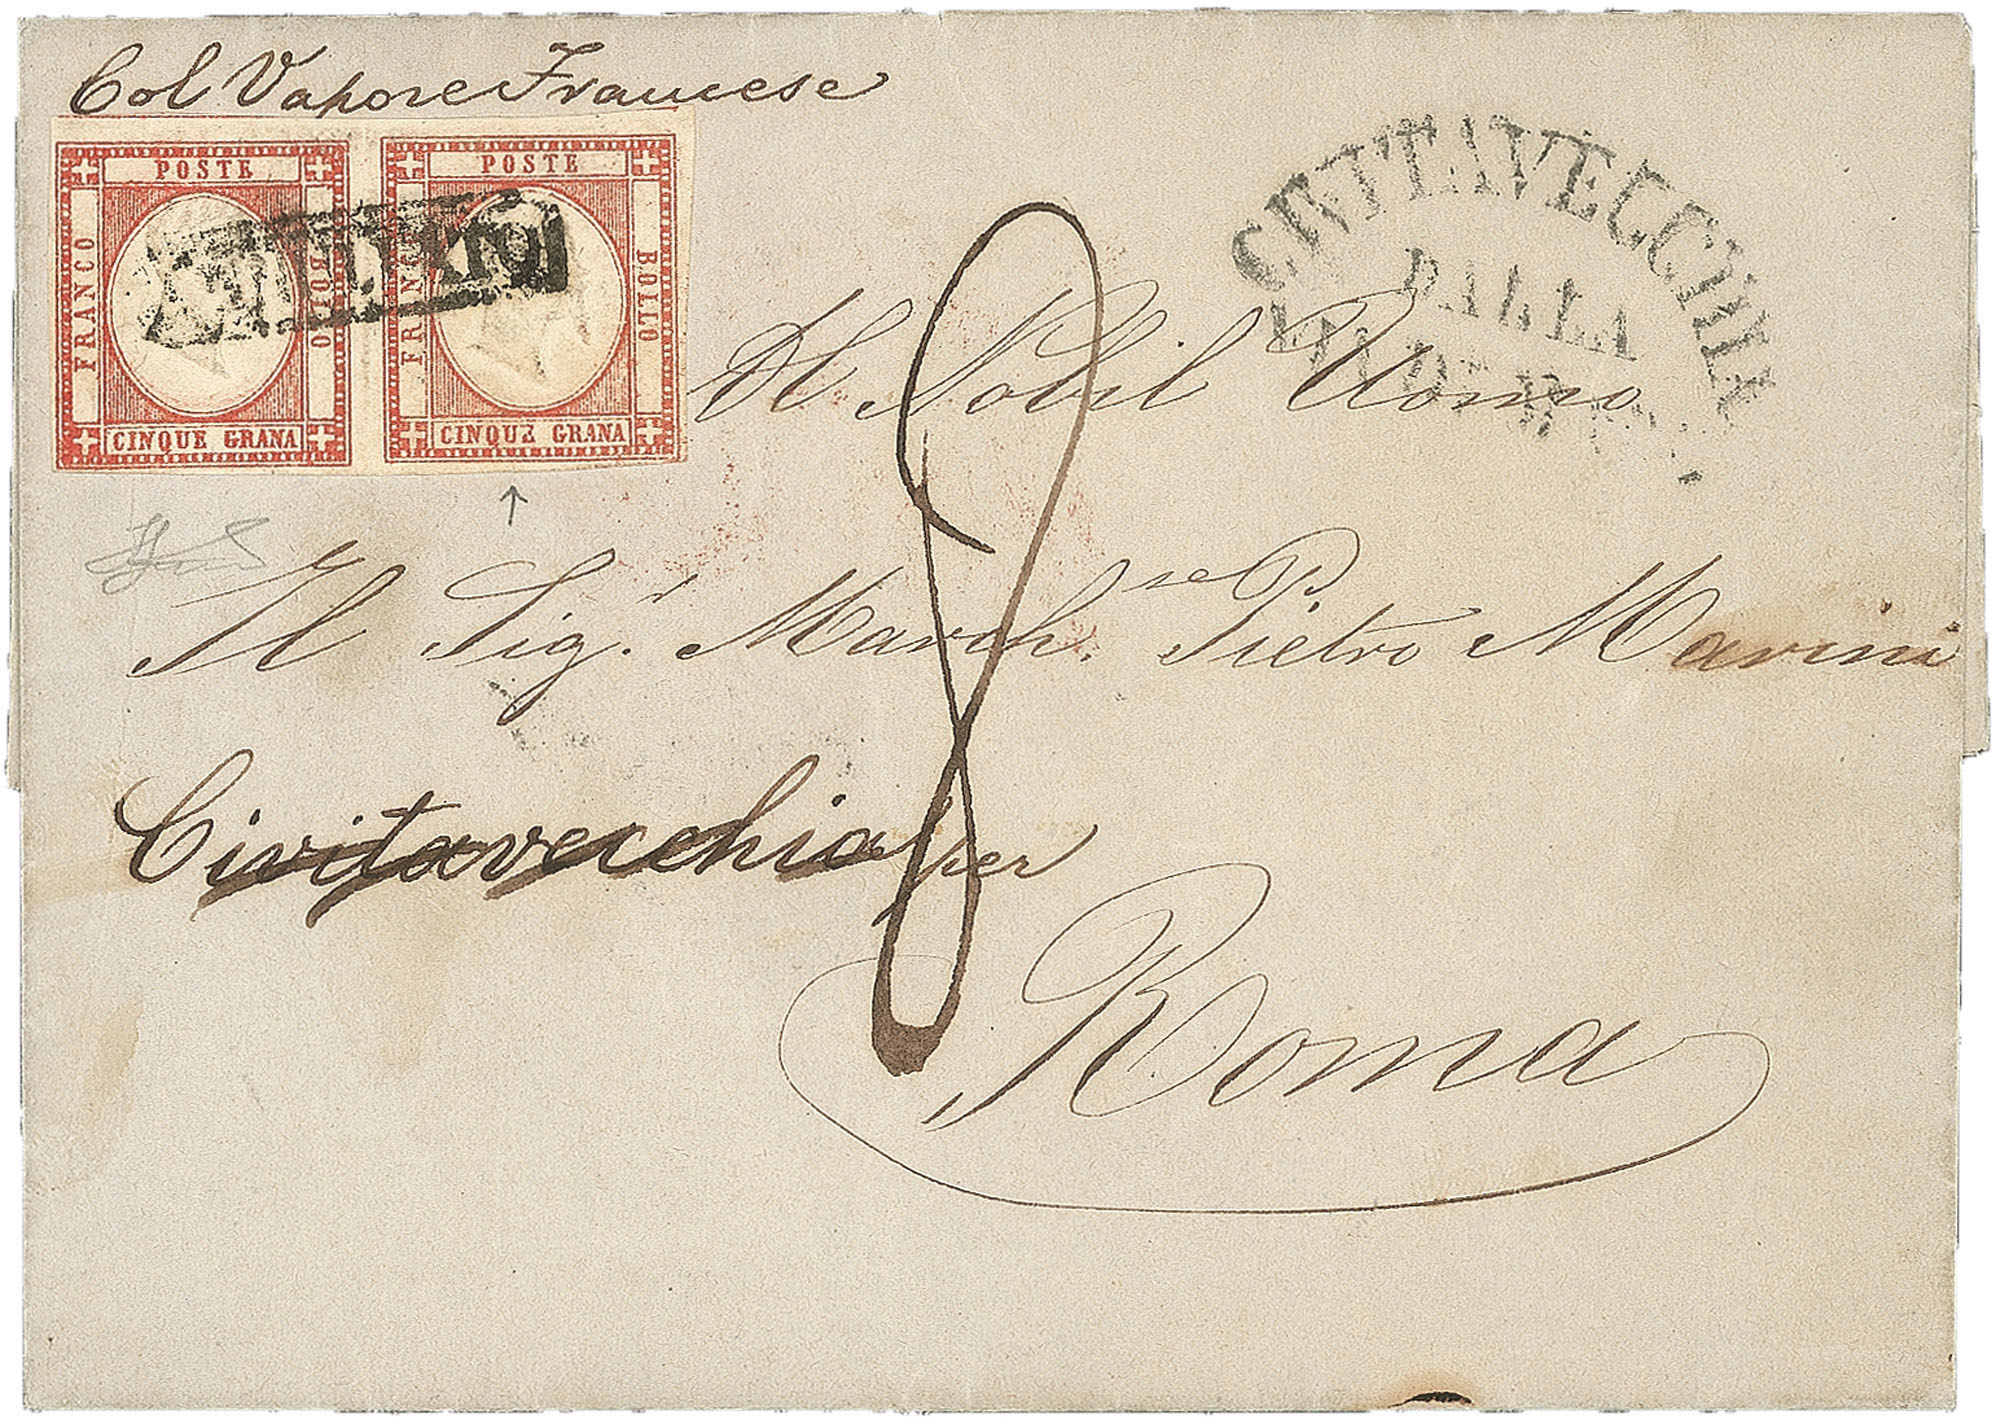 Col Vapore Francese
POSTE
FRANCO
BOLLO
CINQUE GRANA
POSTE
FRANCO
BOLLO
CINQUZ GRANA
ANNULLATO
CIVITAVECCHIA
DALLA
Al Nobil Uomo
Il Sig.r March.se Pietro Marini
Civitavecchia per
Roma
8